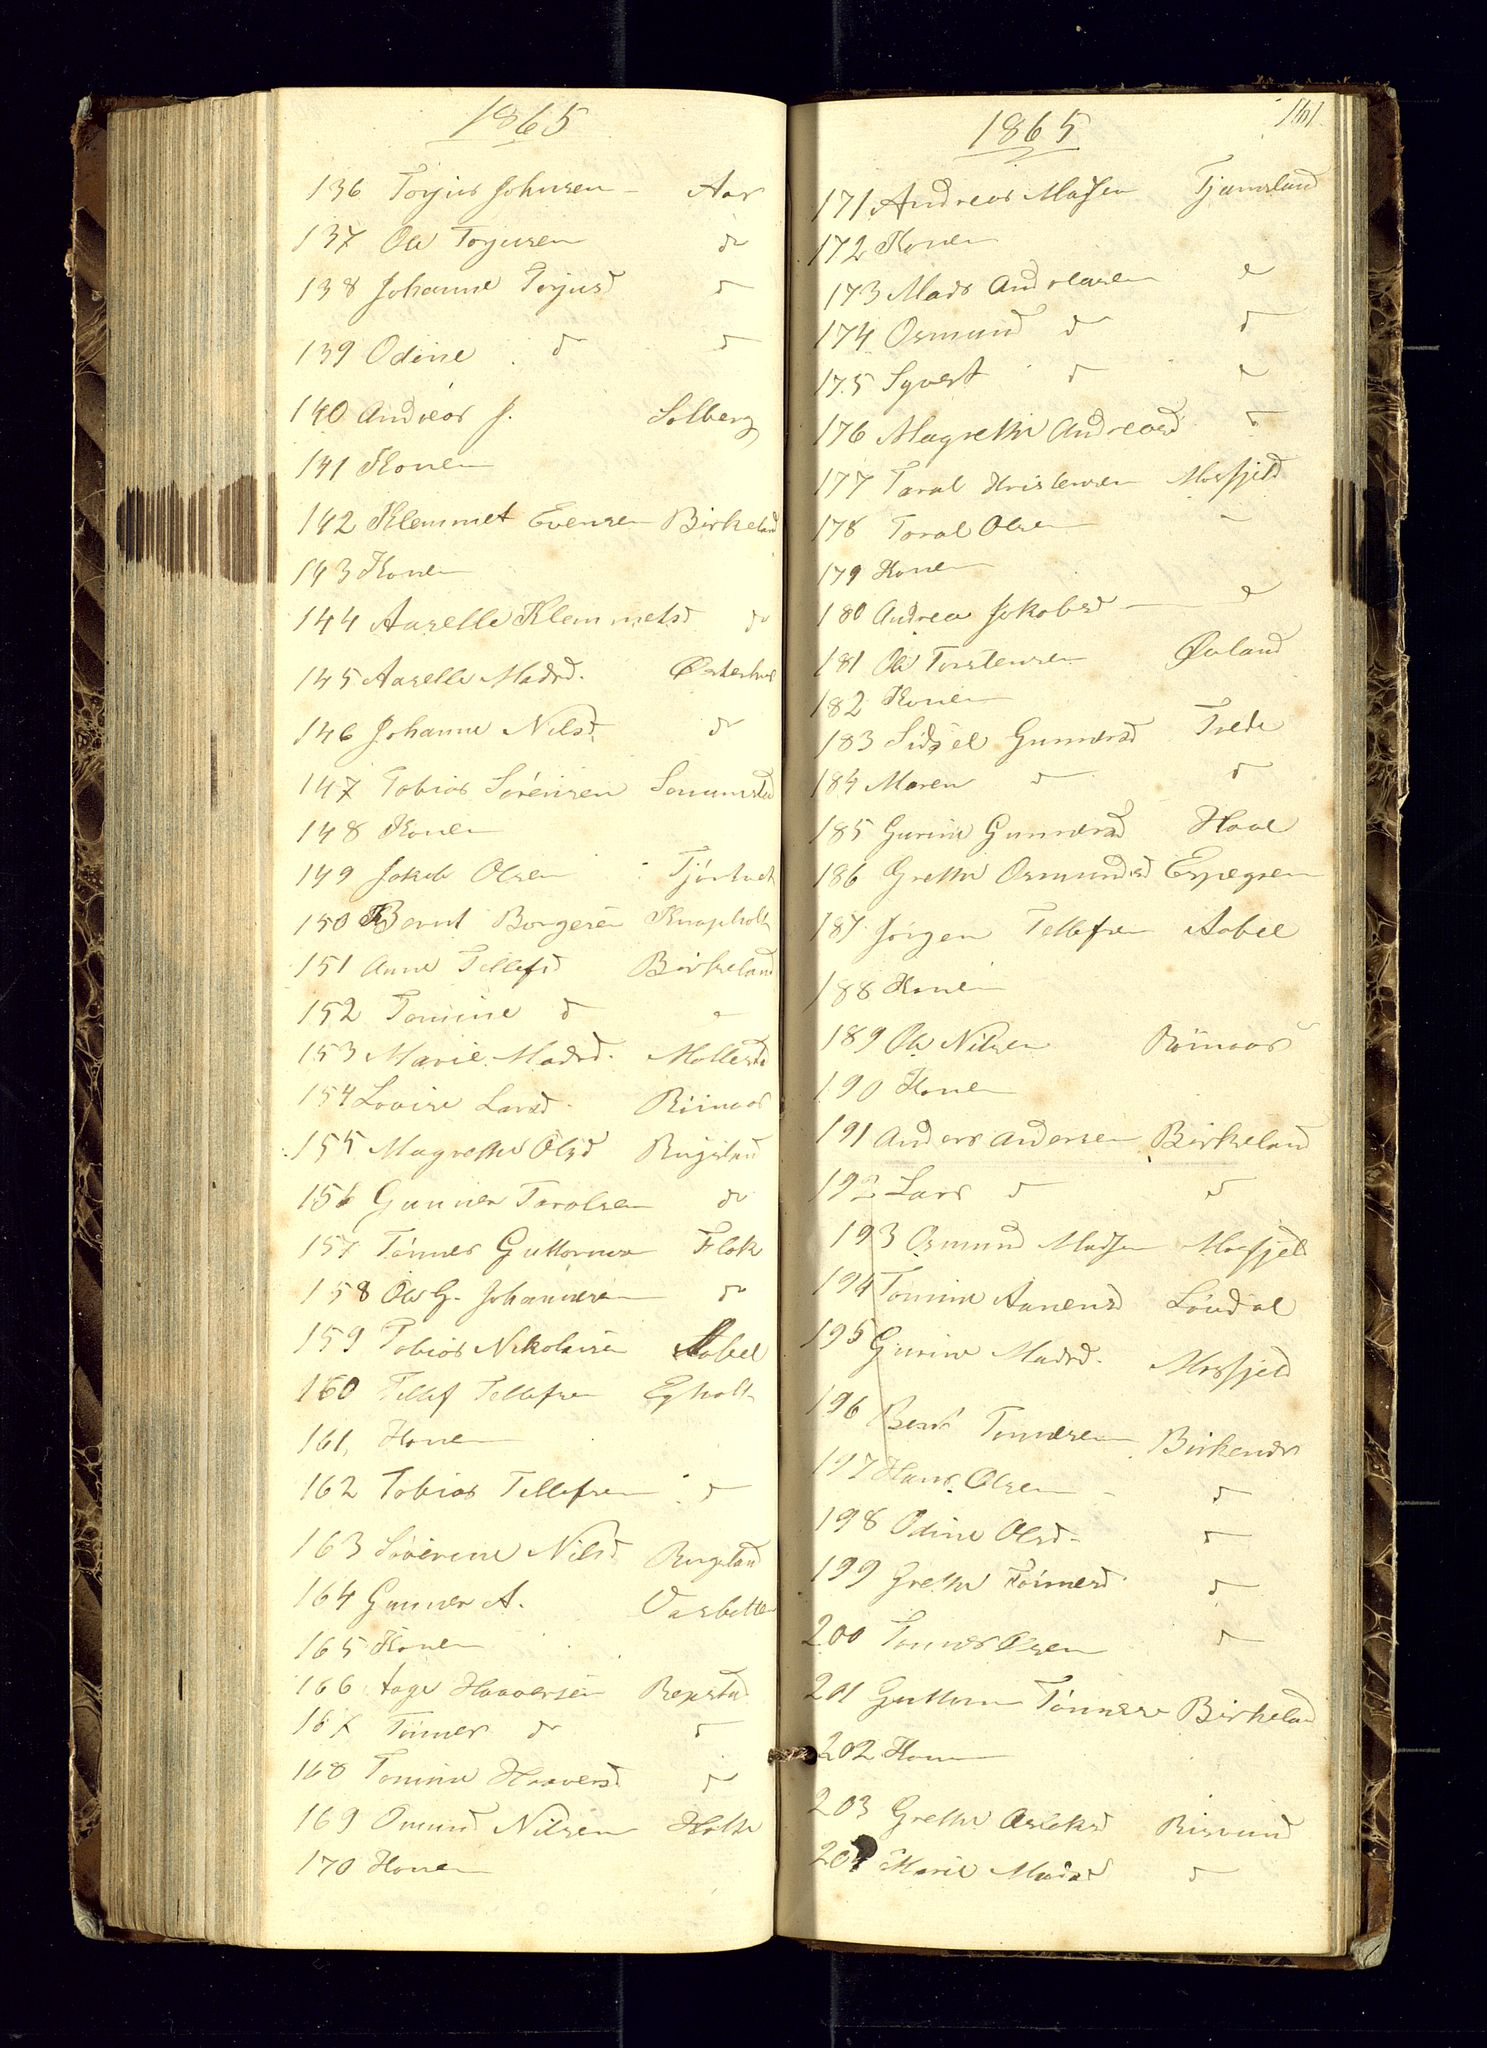 1865
136 Torjus Johnsen - Aas
137 Ole Torjusen do
138 Johanne Torjusd d
139 Odine d d
140 Andreas J. Solberg
141 Konen
142 Klemmet Evensen Birkeland
143 Konen
144 Aaselle Klemmetsd do
145 Aaselle Madsd. Østerhus
146 Johanne Nilsd. do
147 Tobias Sørensen
148 Konen
149 Jakob Olsen
150 Bernt Borgersen Knapholt
151 Anne Tellefsd Birkeland
152 Tomine d
153 Marie Madsd. Mollestad
154 Lovise Larsd. Riinaas
155 Magrethe Olsd Rugsland
156 Gunner Tarolsen do
157 Tønnes Guttormsen Flak
158 Ole G. Johannesen do
159 Tobias Nikolaisen Aabel
160 Tellef Tellefsen Egholt
161, Konen
162 Tobias Tellefsen d
163 Severine Nilsd Rugsland
164 Gunner A. Vasbotten
165 Konen
166 Aage Haaversen Repstad
167 Tønnes do d
168 Tomine Haaversd d
169 Omund Nilsen Holte
170 Konen
1865
161
171 Andreas Madsen Tjamsland
172 Konen
173 Mads Andreasen d
174 Osmund d d
175 Syvert d d
176 Magrethe Andreasd d
177 Taral Kristensen Mosfjeld
178 Taral Olsen
179 Konen
180 Andrea Jakobsd d
181 Ole Torstensen Øvland
182 Konen
183 Sidsel Gunnersd Tvede
184 Maren d d
185 Gurine Gunnersd Haal
186 Grethe Osmundsd Espegren
187 Jørgen Tellefsen Aabel
188 Konen
189 Ole Nilsen Riinaas
190 Konen
191 Anders Andersen Birkeland
192 Lars d d
193 Osmund Madsen Mosfjeld
194 Tomine Aanensd Løvdal
195 Gurine Madsd. Mosfjeld
196 Bent Tønnesen Birkenes
197 Hans Olsen d
198 Odine Olsd d
199 Grethe Tønnesd d
200 Tønnes Olsen d
201 Guttorm Tønnesen Birkeland
202 Konen
203 Grethe Aslaksd Risvand
204 Marie Madsd d